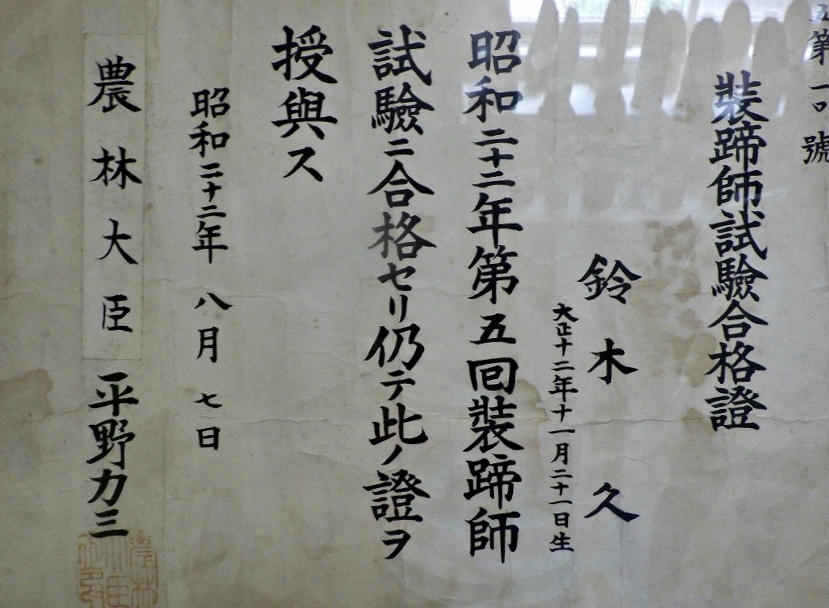 五第一〇號
裝蹄師試驗合格證
鈴木久
大正十二年十一月二十一日生
昭和二十二年第五回裝蹄師
試驗ニ合格セリ仍テ此ノ證ヲ
授與ス
昭和二十二年八月七日
農林大臣 平野力三